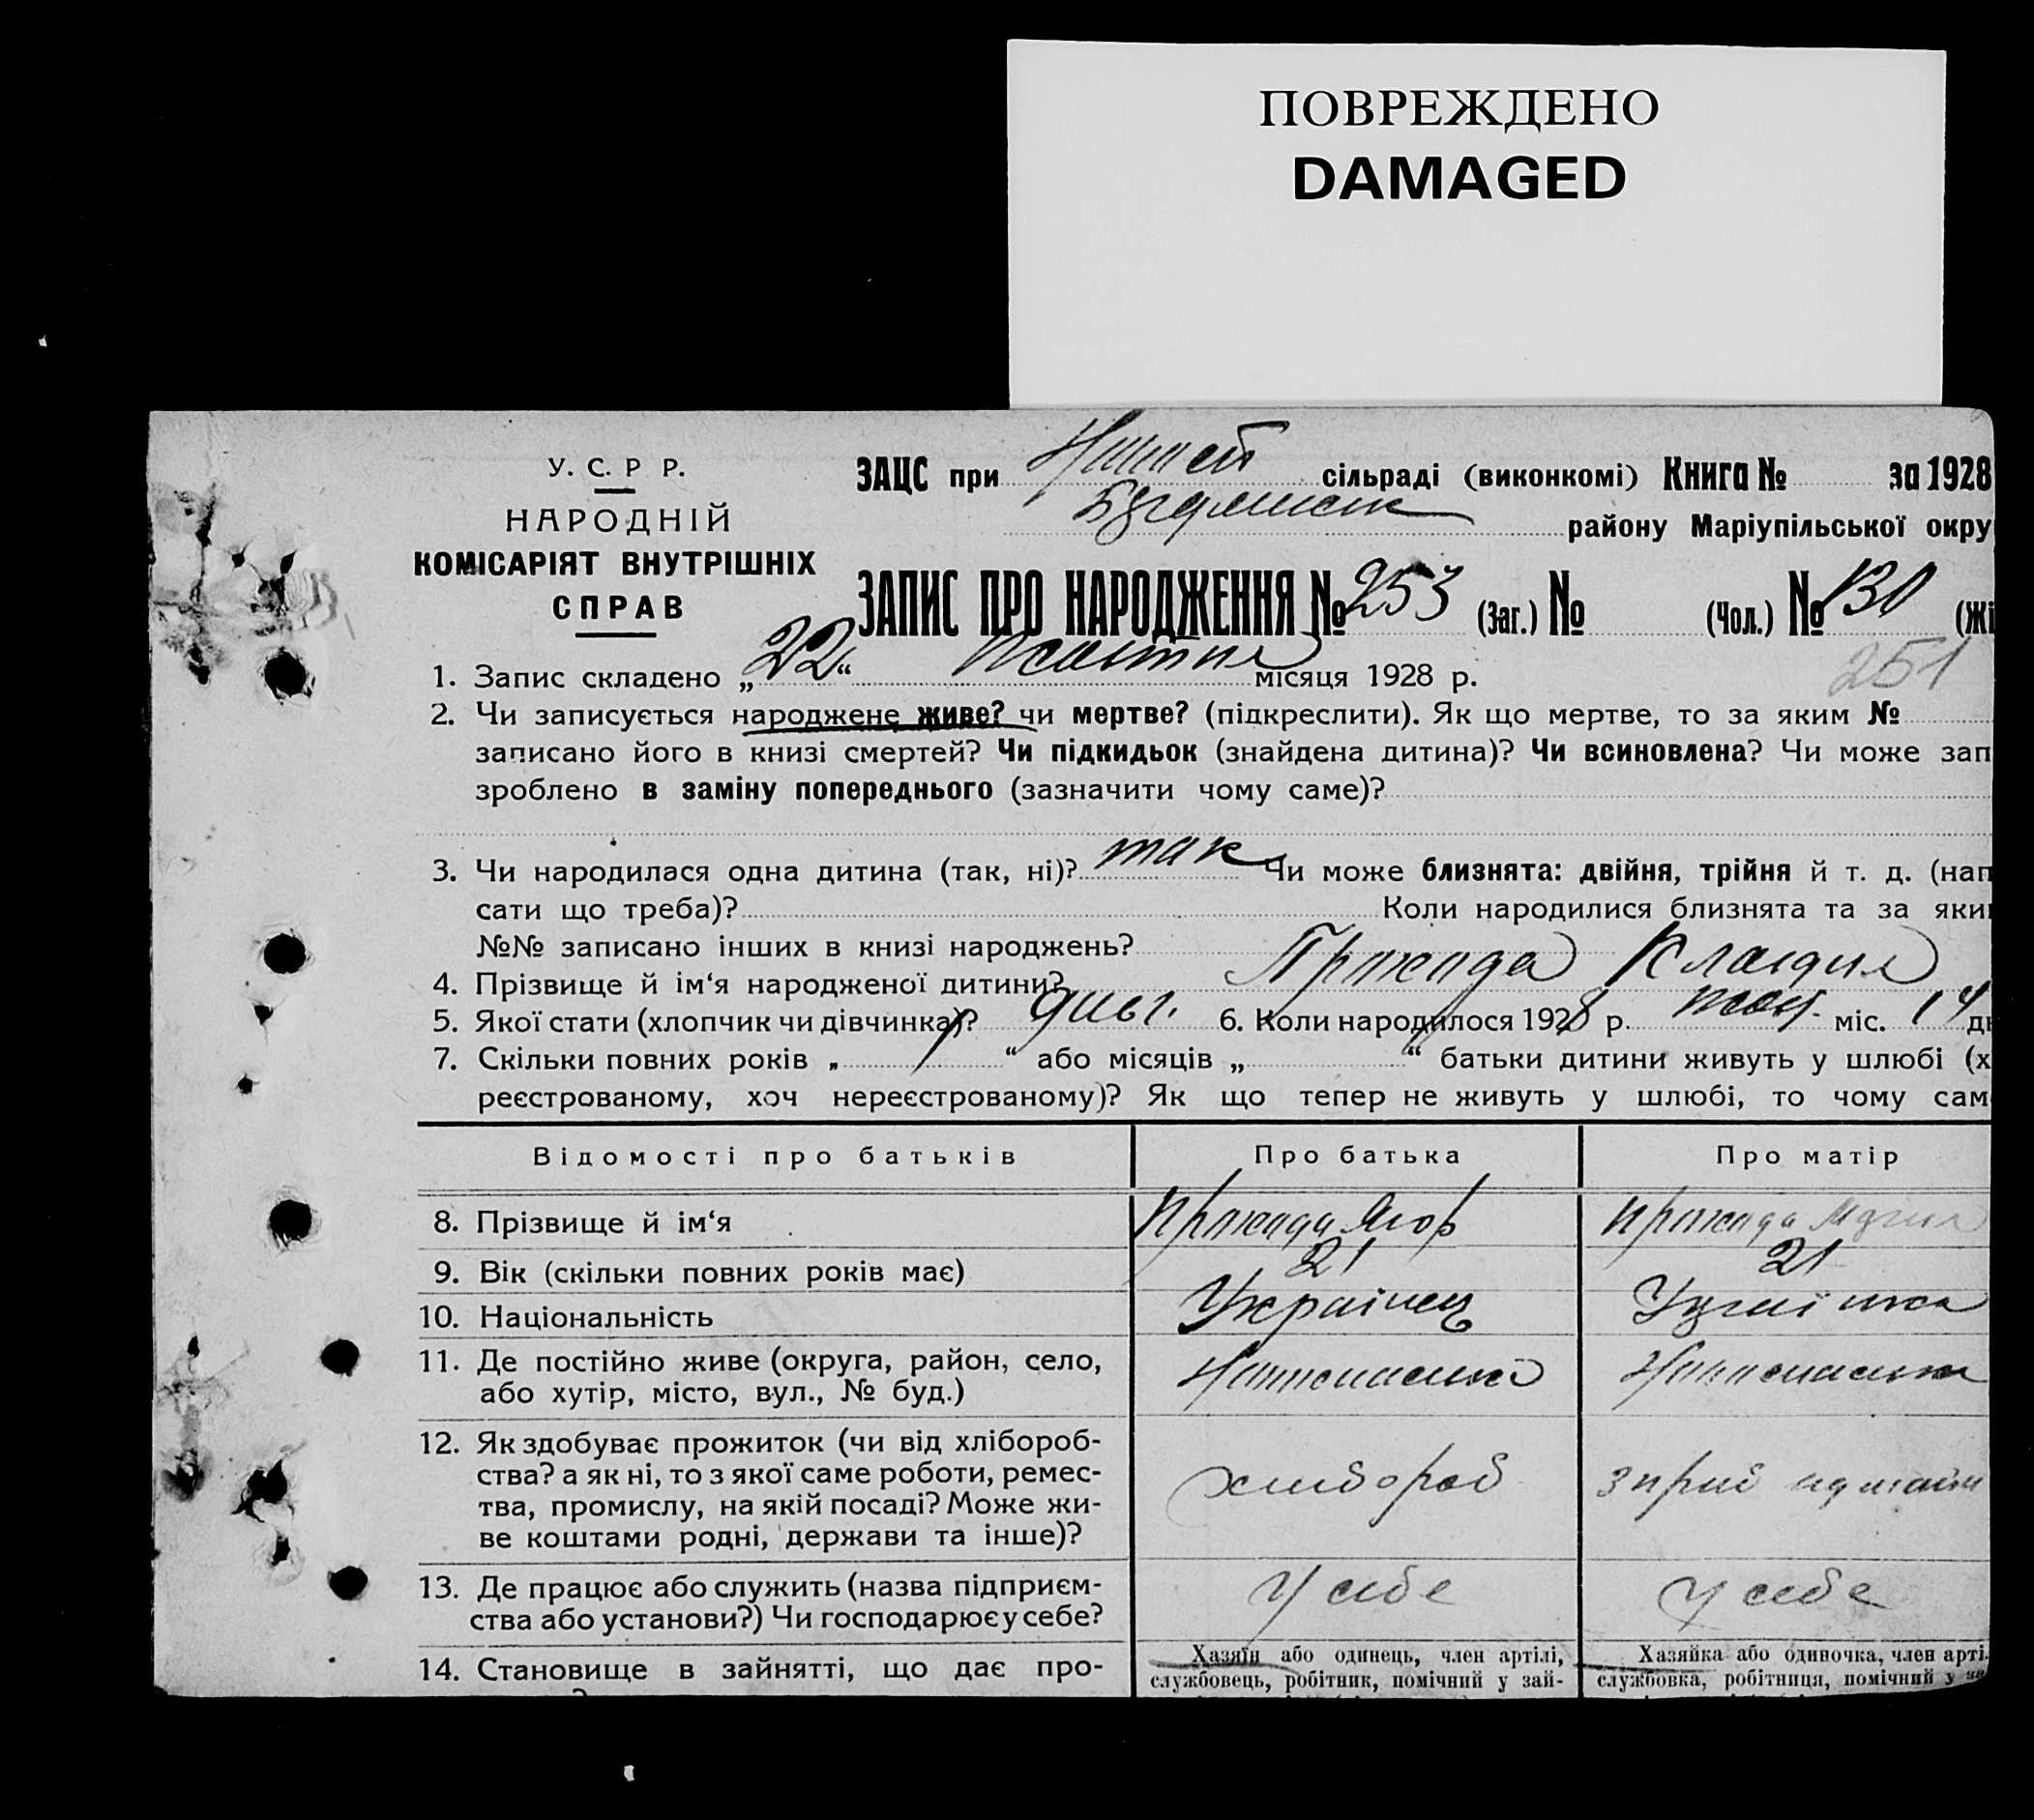 ПОВРЕЖДЕНО
DAMAGED
У. С. Р Р.
НАРОДНІЙ
КОМІСАРІЯТ ВНУТРІШНІХ
СПРАВ
ЗАЦС при сільраді (виконкомі) Книга № за 1928
району Маріупільської окру
ЗАПИС ПРО НАРОДЖЕННЯ № 253 (Заг.) № (Чол.) № 130 (Жі
251
1. Запис складено „22“ жовтня місяця 1928 р.
2. Чи записується народжене живе? чи мертве? (підкреслити). Як що мертве, то за яким №
записано його в книзі смертей? Чи підкидьок (знайдена дитина)? Чи всиновлена? Чи може зап
зроблено в заміну попереднього (зазначити чому саме)?
3. Чи народилася одна дитина (так, ні)? так Чи може близнята: двійня, трійня й т. д. (нап
сати що треба)? Коли народилися близнята та за яки
№№ записано інших в книзі народжень?
4. Прізвище й ім‘я народженої дитини? Клавдия
5. Якої стати (хлопчик чи дівчинка)? 6. Коли народилося 1928 р. жов. міс. 14 дн
7. Скільки повних років „ “ або місяців „ “ батьки дитини живуть у шлюбі (х
реєстрованому, хоч нереєстрованому)? Як що тепер не живуть у шлюбі, то чому сам
Відомості про батьків Про батька Про матір
8. Прізвище й ім‘я Ягор
9. Вік (скільки повних років має) 21 21
10. Національність Українец Українка
11. Де постійно живе (округа, район, село,
або хутір, місто, вул., № буд.)
12. Як здобуває прожиток (чи від хлібороб-
ства? а як ні, то з якої саме роботи, ремес-
тва, промислу, на якій посаді? Може жи-
ве коштами родні, держави та інше)?
хлибороб
13. Де працює або служить (назва підприєм-
ства або установи?) Чи господарює у себе?
У себе У себе
14. Становище в зайнятті, що дає про-
Хазяїн або одинець, член артілі,
службовець, робітник, помічний у зай-
Хазяйка або одиночка, член арті
службовка, робітниця, помічний у за